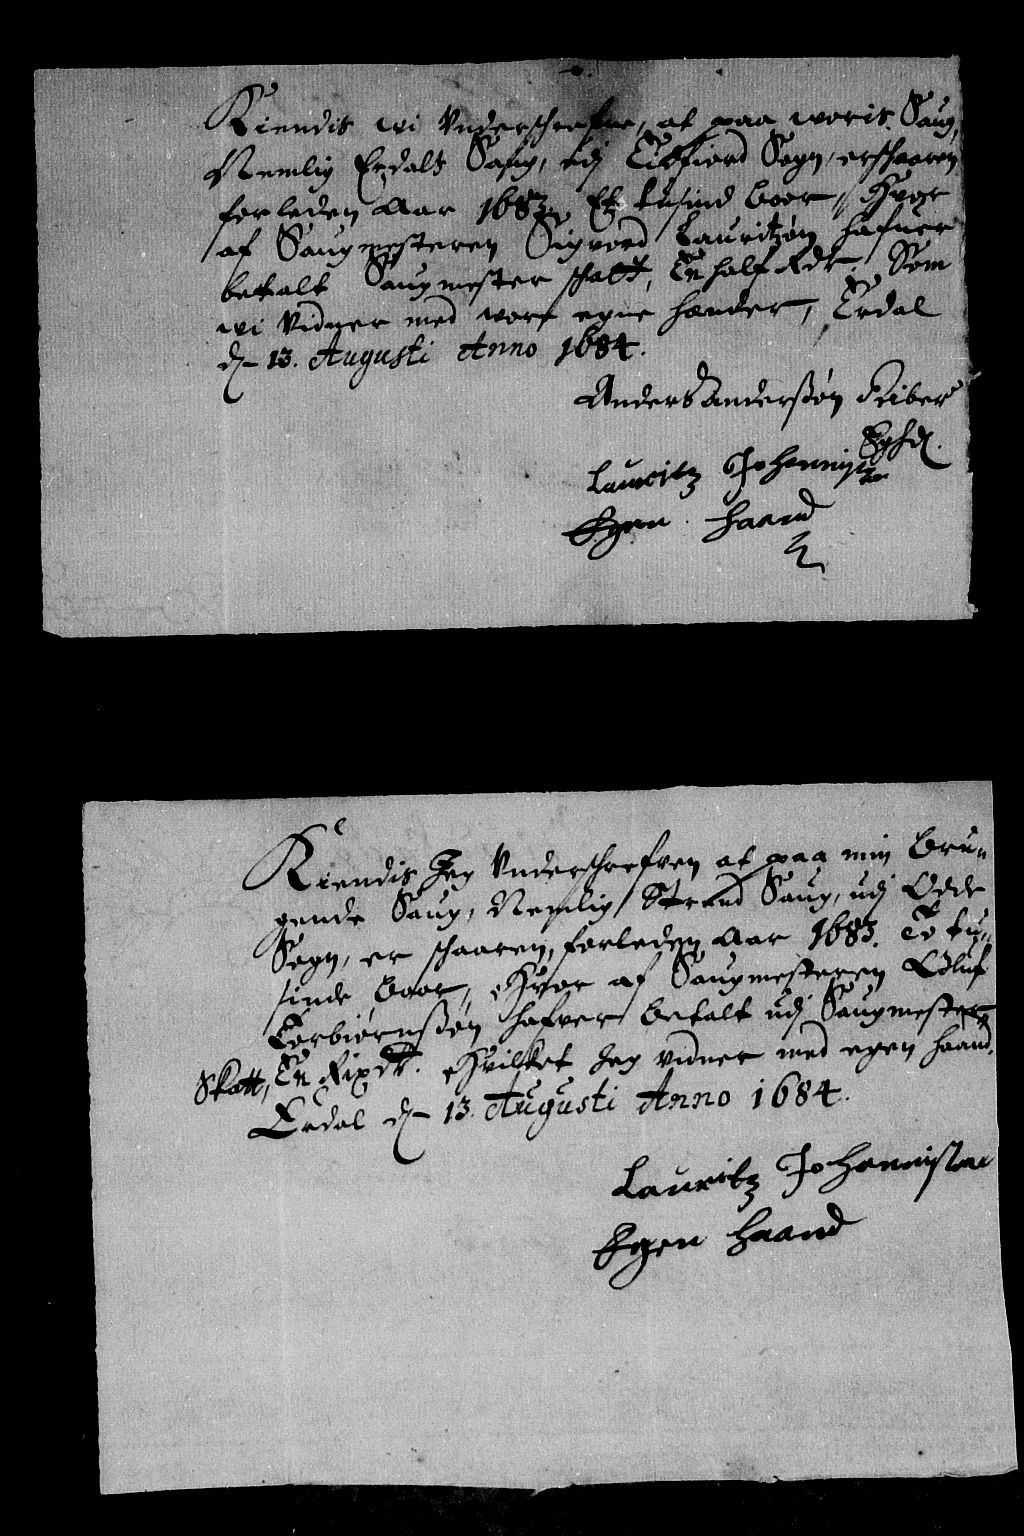 Kiendis wi Underschrefne, at paa woris Saug,
Nemlig Erdals Saug, udj Eidfiord Sogn, er schaaren
forleden Aar 1683. Et tusind boor, Hvor
af Saugmesteren Sigvord Lauritzøn hafuer
betalt Saugmester schatt, En half Rdr. Som
wi Vidner med wore egne Hænder, Erdal
dn 13. Augusti Anno 1684.
Anders Anderssøn Riber
EghH.
Lauritz Johannissøn
Egen Haand
Kiendis Jeg Underschrefven at paa min brun
gende Saug, Nemlig Strand Saug, udj Odde
Sogn, er schaaren, forleden Aar 1683. To tu-
sinde boor, Hvor af Saugmesteren Oluf
Torbiørnssøn hafver betalt udj Saugmester
Skatt, En Rixdr. Hvilket Jeg vidner med egen haand.
Erdal dn 13. Augusti Anno 1684.
Lauritz Johannissøn
Egen Haand